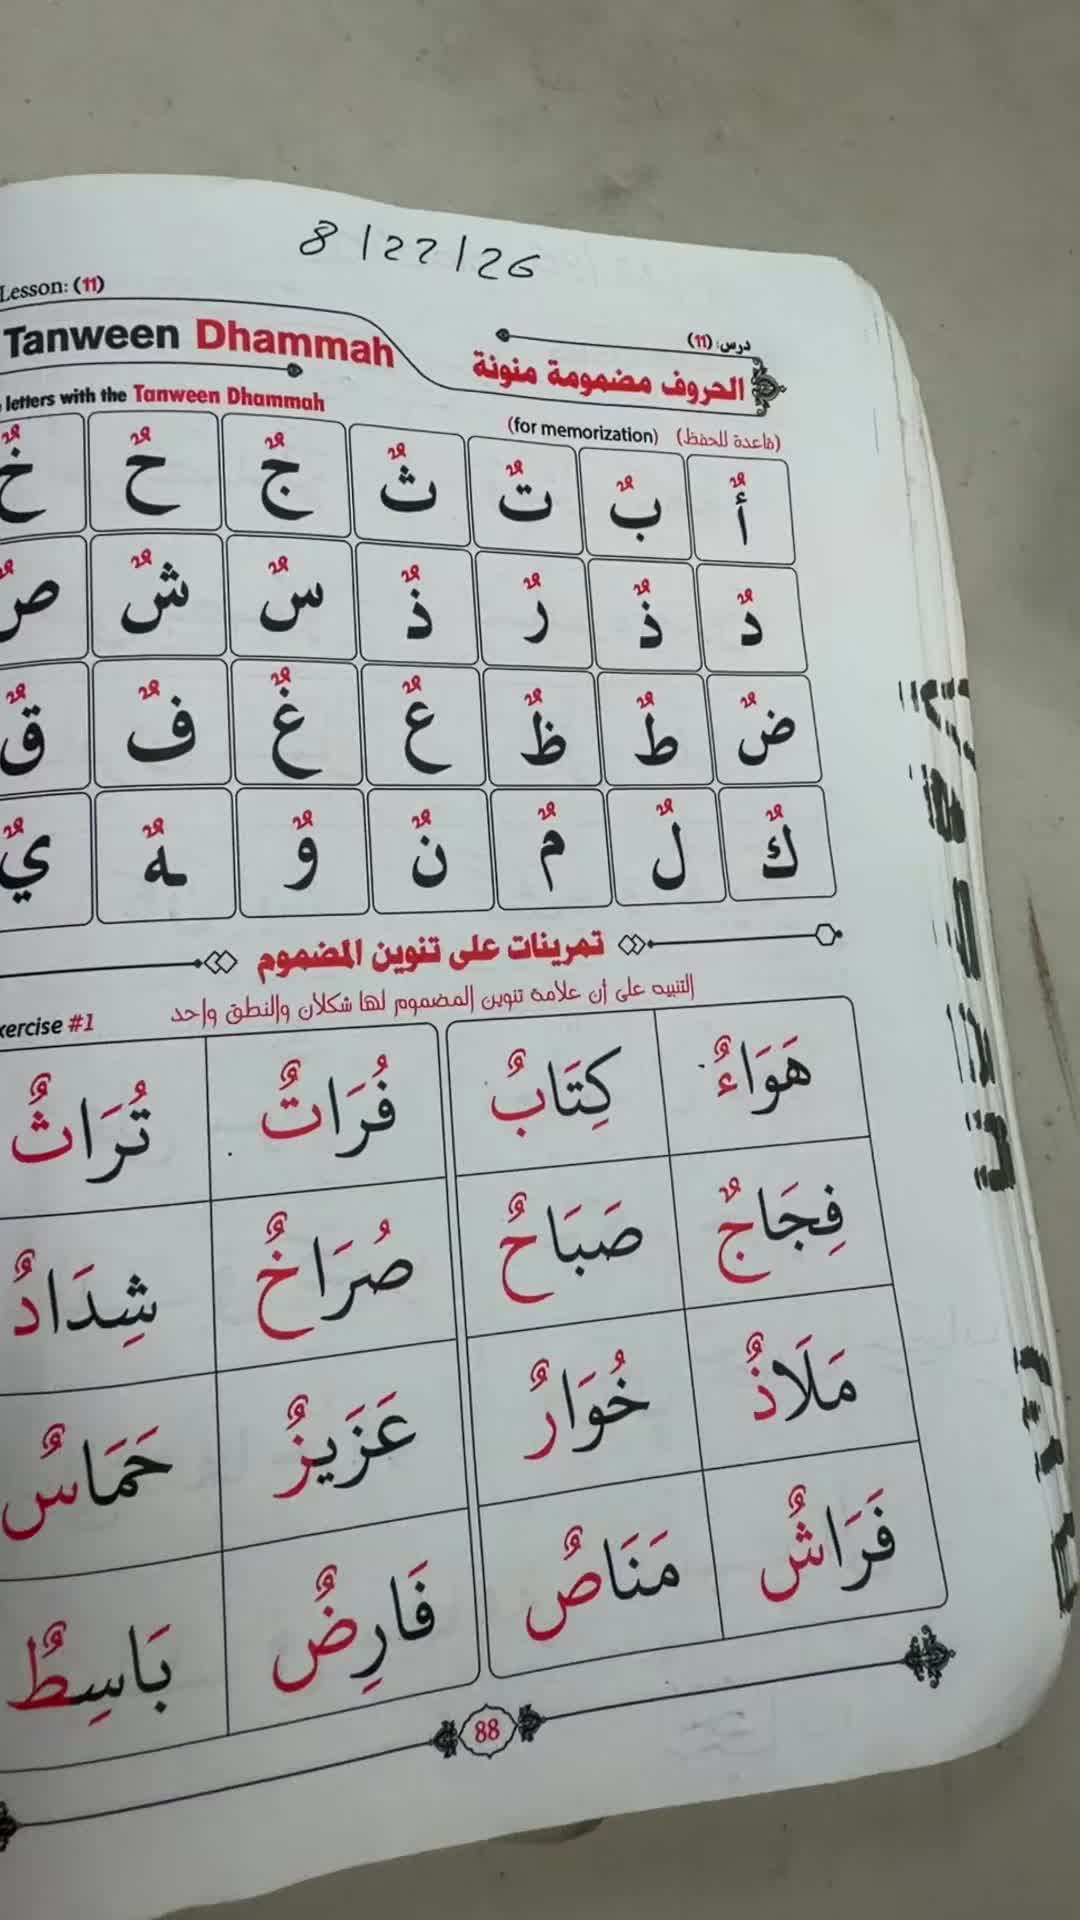 8/22/26
Lesson: (11)
درس: (11)
Tanween Dhammah
الحروف مضمومة منونة
letters with the Tanween Dhammah
(for memorization) (قاعدة للحفظ)
أٌ بٌ تٌ ثٌ جٌ حٌ خٌ
دٌ ذٌ رٌ ذٌ سٌ شٌ صٌ
ضٌ طٌ ظٌ عٌ غٌ فٌ قٌ
كٌ لٌ مٌ نٌ وٌ هٌ يٌ
تمرينات على تنوين المضموم
التنبيه على أن علامة تنوين المضموم لها شكلان والنطق واحد
xercise #1
هَوَاءٌ كِتَابٌ فُرَاتٌ تُرَاثٌ
فِجَاجٌ صَبَاحٌ صُرَاخٌ شِدَادٌ
مَلَاذٌ خُوَارٌ عَزَيزٌ حَمَاسٌ
فَرَاشٌ مَنَاصٌ فَارِضٌ بَاسِطٌ
88